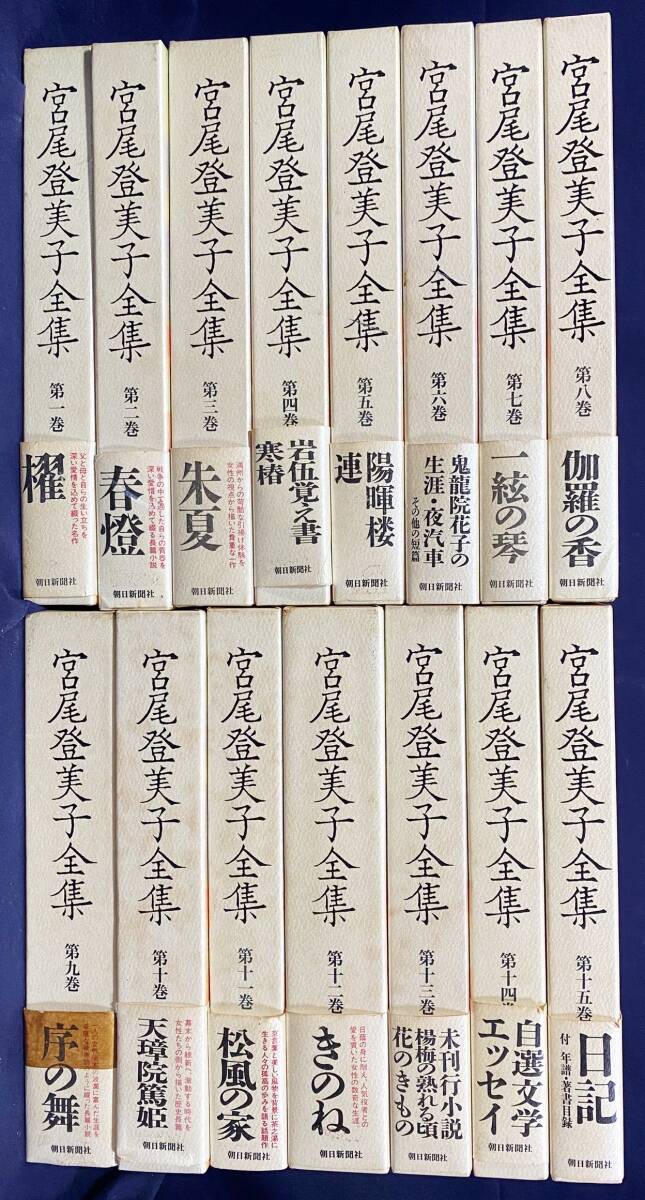 宮尾登美子全集
第一巻
櫂
父と母と自らの生い立ちを
深い愛情を込めて綴った名作
朝日新聞社
宮尾登美子全集
第二巻
春燈
戦争の中で過した自らの青春を
深い愛情を込めて綴る長篇小説
朝日新聞社
宮尾登美子全集
第三巻
朱夏
満州からの苛酷な引揚げ体験を
女性の視点から描いた貴重な一作
朝日新聞社
宮尾登美子全集
第四巻
岩伍覚え書
寒椿
朝日新聞社
宮尾登美子全集
第五巻
陽暉楼
連
朝日新聞社
宮尾登美子全集
第六巻
鬼龍院花子の
生涯・夜汽車
その他の短篇
朝日新聞社
宮尾登美子全集
第七巻
一絃の琴
朝日新聞社
宮尾登美子全集
第八巻
伽羅の香
朝日新聞社
宮尾登美子全集
第九巻
序の舞
朝日新聞社
宮尾登美子全集
第十巻
天璋院篤姫
幕末から維新へ、激動する時代を
女性たちの側から描いた歴史長篇
朝日新聞社
宮尾登美子全集
第十一巻
松風の家
京言葉と美しい風物を背景に茶之湯に
生きる人々の孤高の歩みを語る話題作
朝日新聞社
宮尾登美子全集
第十二巻
きのね
日蔭の身に耐え、人気役者との
愛を貫いた女性の数奇な生涯
朝日新聞社
宮尾登美子全集
第十三巻
未刊行小説
楊梅の熟れる頃
花のきもの
朝日新聞社
宮尾登美子全集
第十四巻
自選文学
エッセイ
朝日新聞社
宮尾登美子全集
第十五巻
日記
付 年譜・著書目録
朝日新聞社